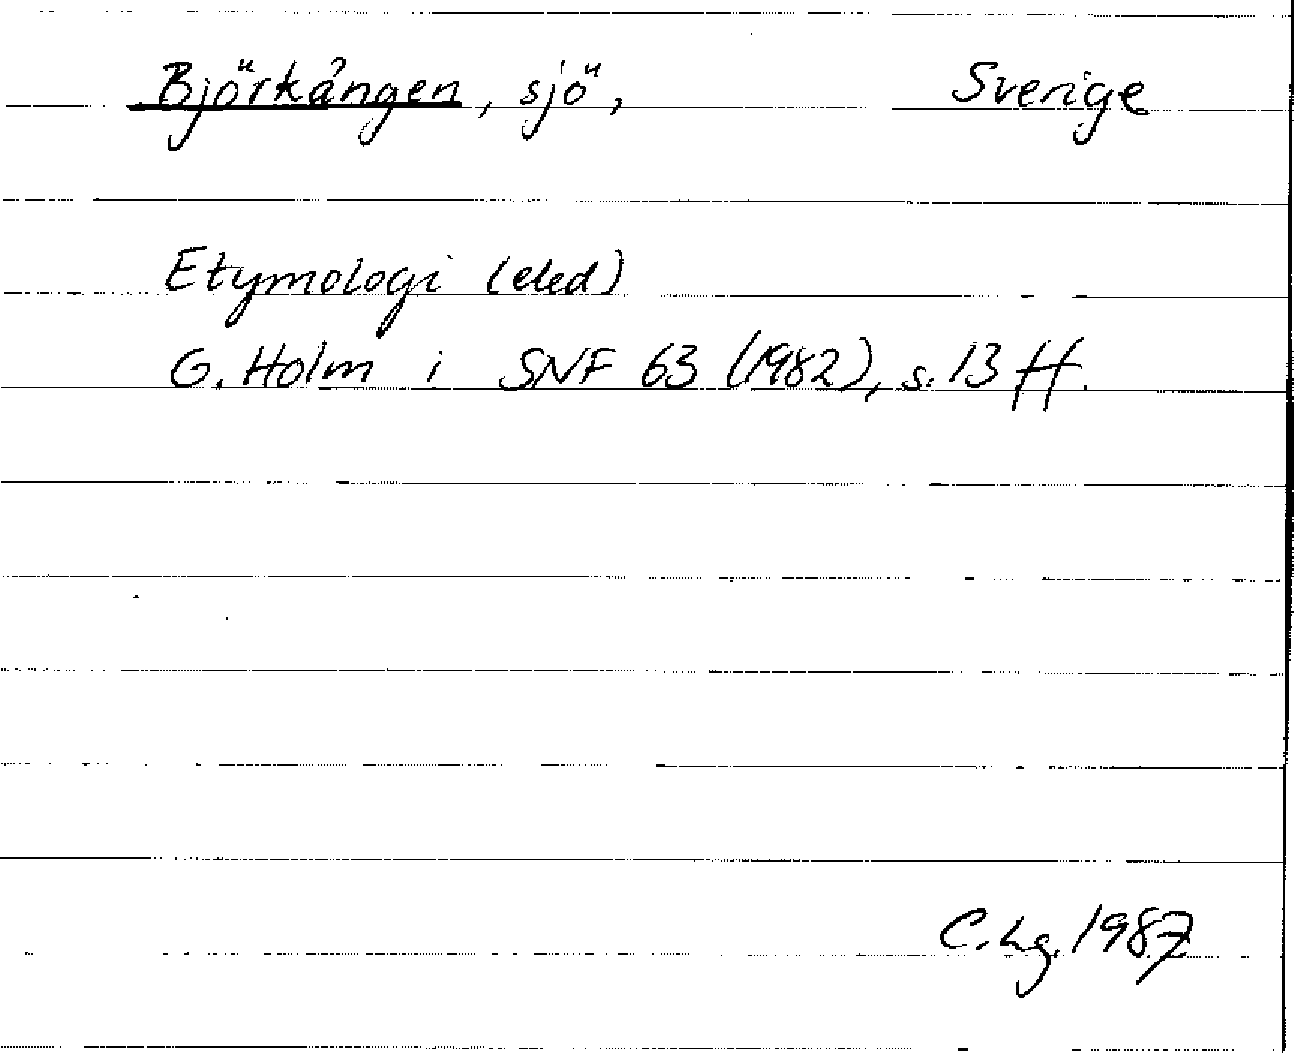 Björkången, sjö, Sverige
Etymologi (eled)
G. Holm i SNF 63 (1982), s. 13 ff.
C. Lg. 1987